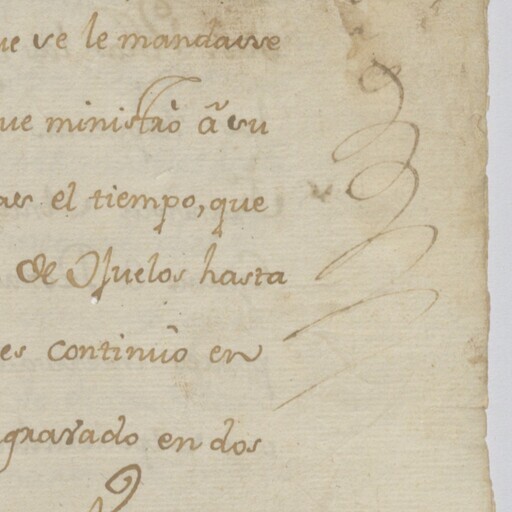 ue se le mandasse
ue ministrò â su
el tiempo, que
de Ojuelos hasta
es continuò en
gravado en dos